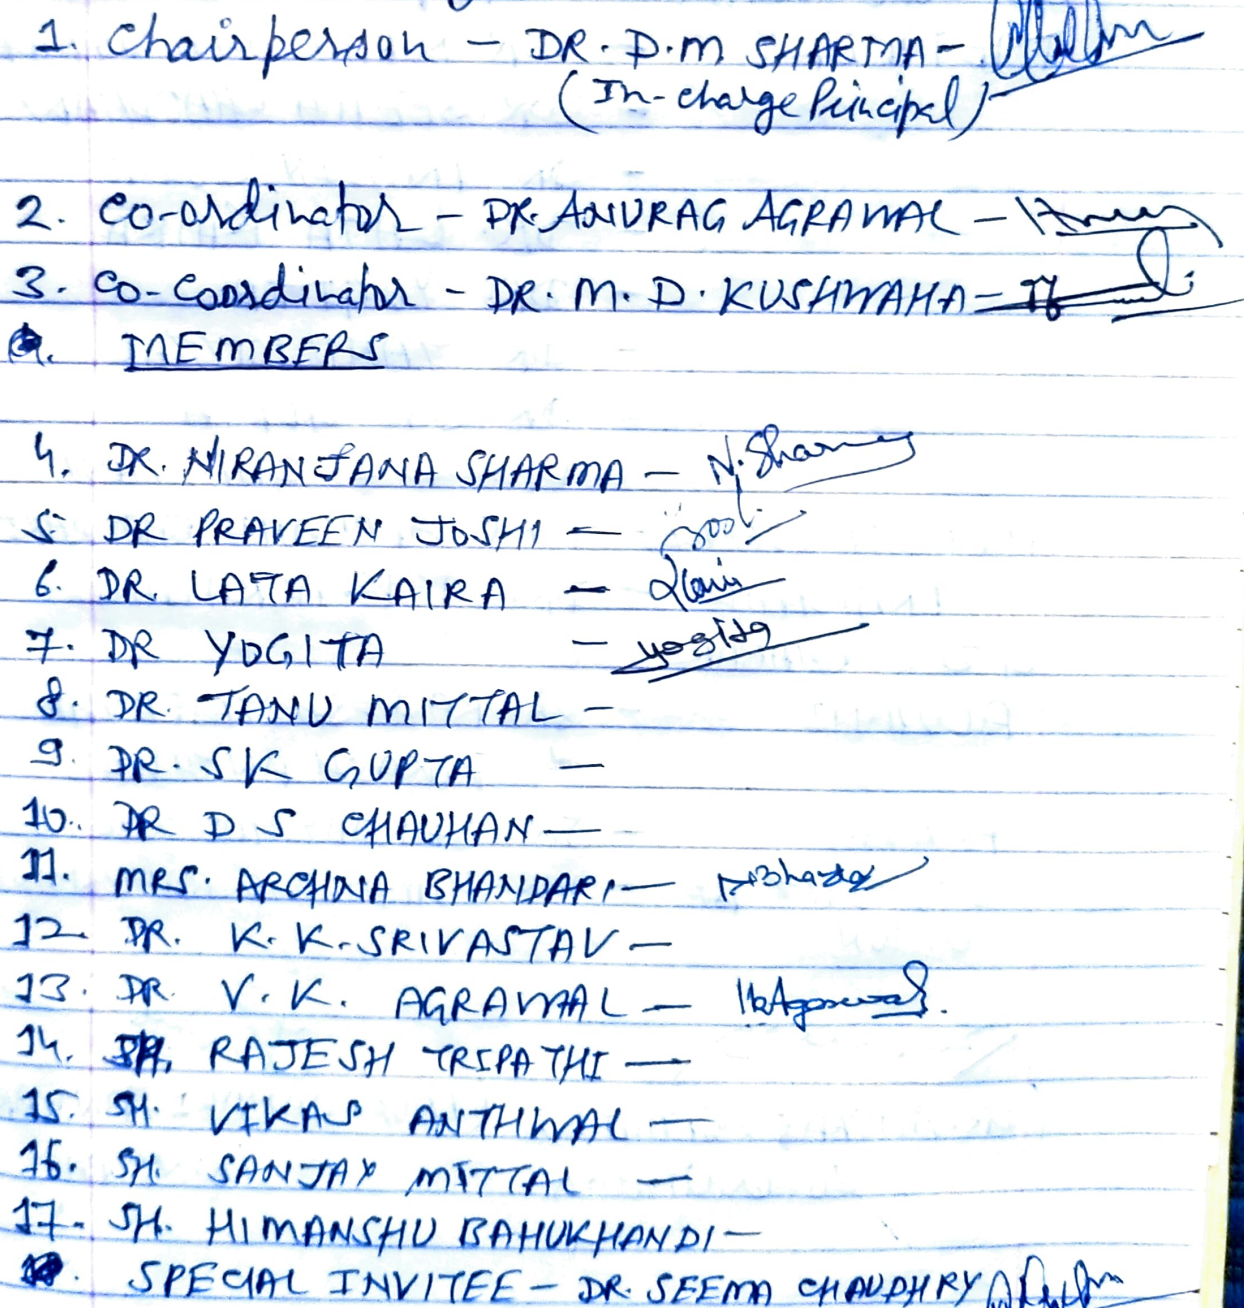 1. Chairperson - DR. D.M SHARMA -
(In-charge Principal)
2. Co-ordinator - DR. ANURAG AGRAWAL -
3. Co-Coordinator - DR. M. D. KUSHWAHA -
MEMBERS
4. DR. NIRANJANA SHARMA - N. Sharma
5 DR PRAVEEN JOSHI -
6. DR. LATA KAIRA -
7. DR YOGITA - Yogita
8. DR. TANU MITTAL -
9. DR. SK GUPTA -
10. DR D S CHAUHAN -
11. MRS. ARCHNA BHANDARI -
12. DR. K. K. SRIVASTAV -
13. DR. V. K. AGRAWAL - VkAgarwal.
14. SH. RAJESH TRIPATHI -
15. SH. VIKAS ANTHWAL -
16. SH. SANJAY MITTAL -
17. SH. HIMANSHU BAHUKHANDI -
SPECIAL INVITEE - DR. SEEMA CHAUDHRY